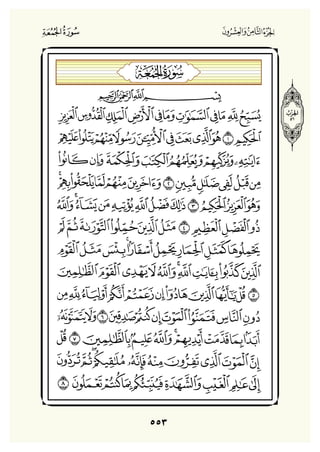 الجُزْءُ الثَّامِنُ وَالعِشْرُونَ
سُورَةُ الجُمُعَةِ
سُورَةُ الجُمُعَةِ
بِسْمِ ٱللَّهِ ٱلرَّحْمَٰنِ ٱلرَّحِيمِ
يُسَبِّحُ لِلَّهِ مَا فِي ٱلسَّمَٰوَٰتِ وَمَا فِي ٱلْأَرْضِ ٱلْمَلِكِ ٱلْقُدُّوسِ ٱلْعَزِيزِ
ٱلْحَكِيمِ ١ هُوَ ٱلَّذِي بَعَثَ فِي ٱلْأُمِّيِّـۧنَ رَسُولًا مِّنْهُمْ يَتْلُوا۟ عَلَيْهِمْ
ءَايَٰتِهِۦ وَيُزَكِّيهِمْ وَيُعَلِّمُهُمُ ٱلْكِتَٰبَ وَٱلْحِكْمَةَ وَإِن كَانُوا۟
مِن قَبْلُ لَفِي ضَلَٰلٍ مُّبِينٍ ٢ وَءَاخَرِينَ مِنْهُمْ لَمَّا يَلْحَقُوا۟ بِهِمْ
وَهُوَ ٱلْعَزِيزُ ٱلْحَكِيمُ ٣ ذَٰلِكَ فَضْلُ ٱللَّهِ يُؤْتِيهِ مَن يَشَآءُ وَٱللَّهُ
ذُو ٱلْفَضْلِ ٱلْعَظِيمِ ٤ مَثَلُ ٱلَّذِينَ حُمِّلُوا۟ ٱلتَّوْرَىٰةَ ثُمَّ لَمْ
يَحْمِلُوهَا كَمَثَلِ ٱلْحِمَارِ يَحْمِلُ أَسْفَارًۢا بِئْسَ مَثَلُ ٱلْقَوْمِ
ٱلَّذِينَ كَذَّبُوا۟ بِـَٔايَٰتِ ٱللَّهِ وَٱللَّهُ لَا يَهْدِي ٱلْقَوْمَ ٱلظَّٰلِمِينَ
٥ قُلْ يَٰٓأَيُّهَا ٱلَّذِينَ هَادُوٓا۟ إِن زَعَمْتُمْ أَنَّكُمْ أَوْلِيَآءُ لِلَّهِ مِن
دُونِ ٱلنَّاسِ فَتَمَنَّوُا۟ ٱلْمَوْتَ إِن كُنتُمْ صَٰدِقِينَ ٦ وَلَا يَتَمَنَّوْنَهُۥٓ
أَبَدًۢا بِمَا قَدَّمَتْ أَيْدِيهِمْ وَٱللَّهُ عَلِيمٌۢ بِٱلظَّٰلِمِينَ ٧ قُلْ
إِنَّ ٱلْمَوْتَ ٱلَّذِي تَفِرُّونَ مِنْهُ فَإِنَّهُۥ مُلَٰقِيكُمْ ثُمَّ تُرَدُّونَ
إِلَىٰ عَٰلِمِ ٱلْغَيْبِ وَٱلشَّهَٰدَةِ فَيُنَبِّئُكُم بِمَا كُنتُمْ تَعْمَلُونَ ٨
٥٥٣